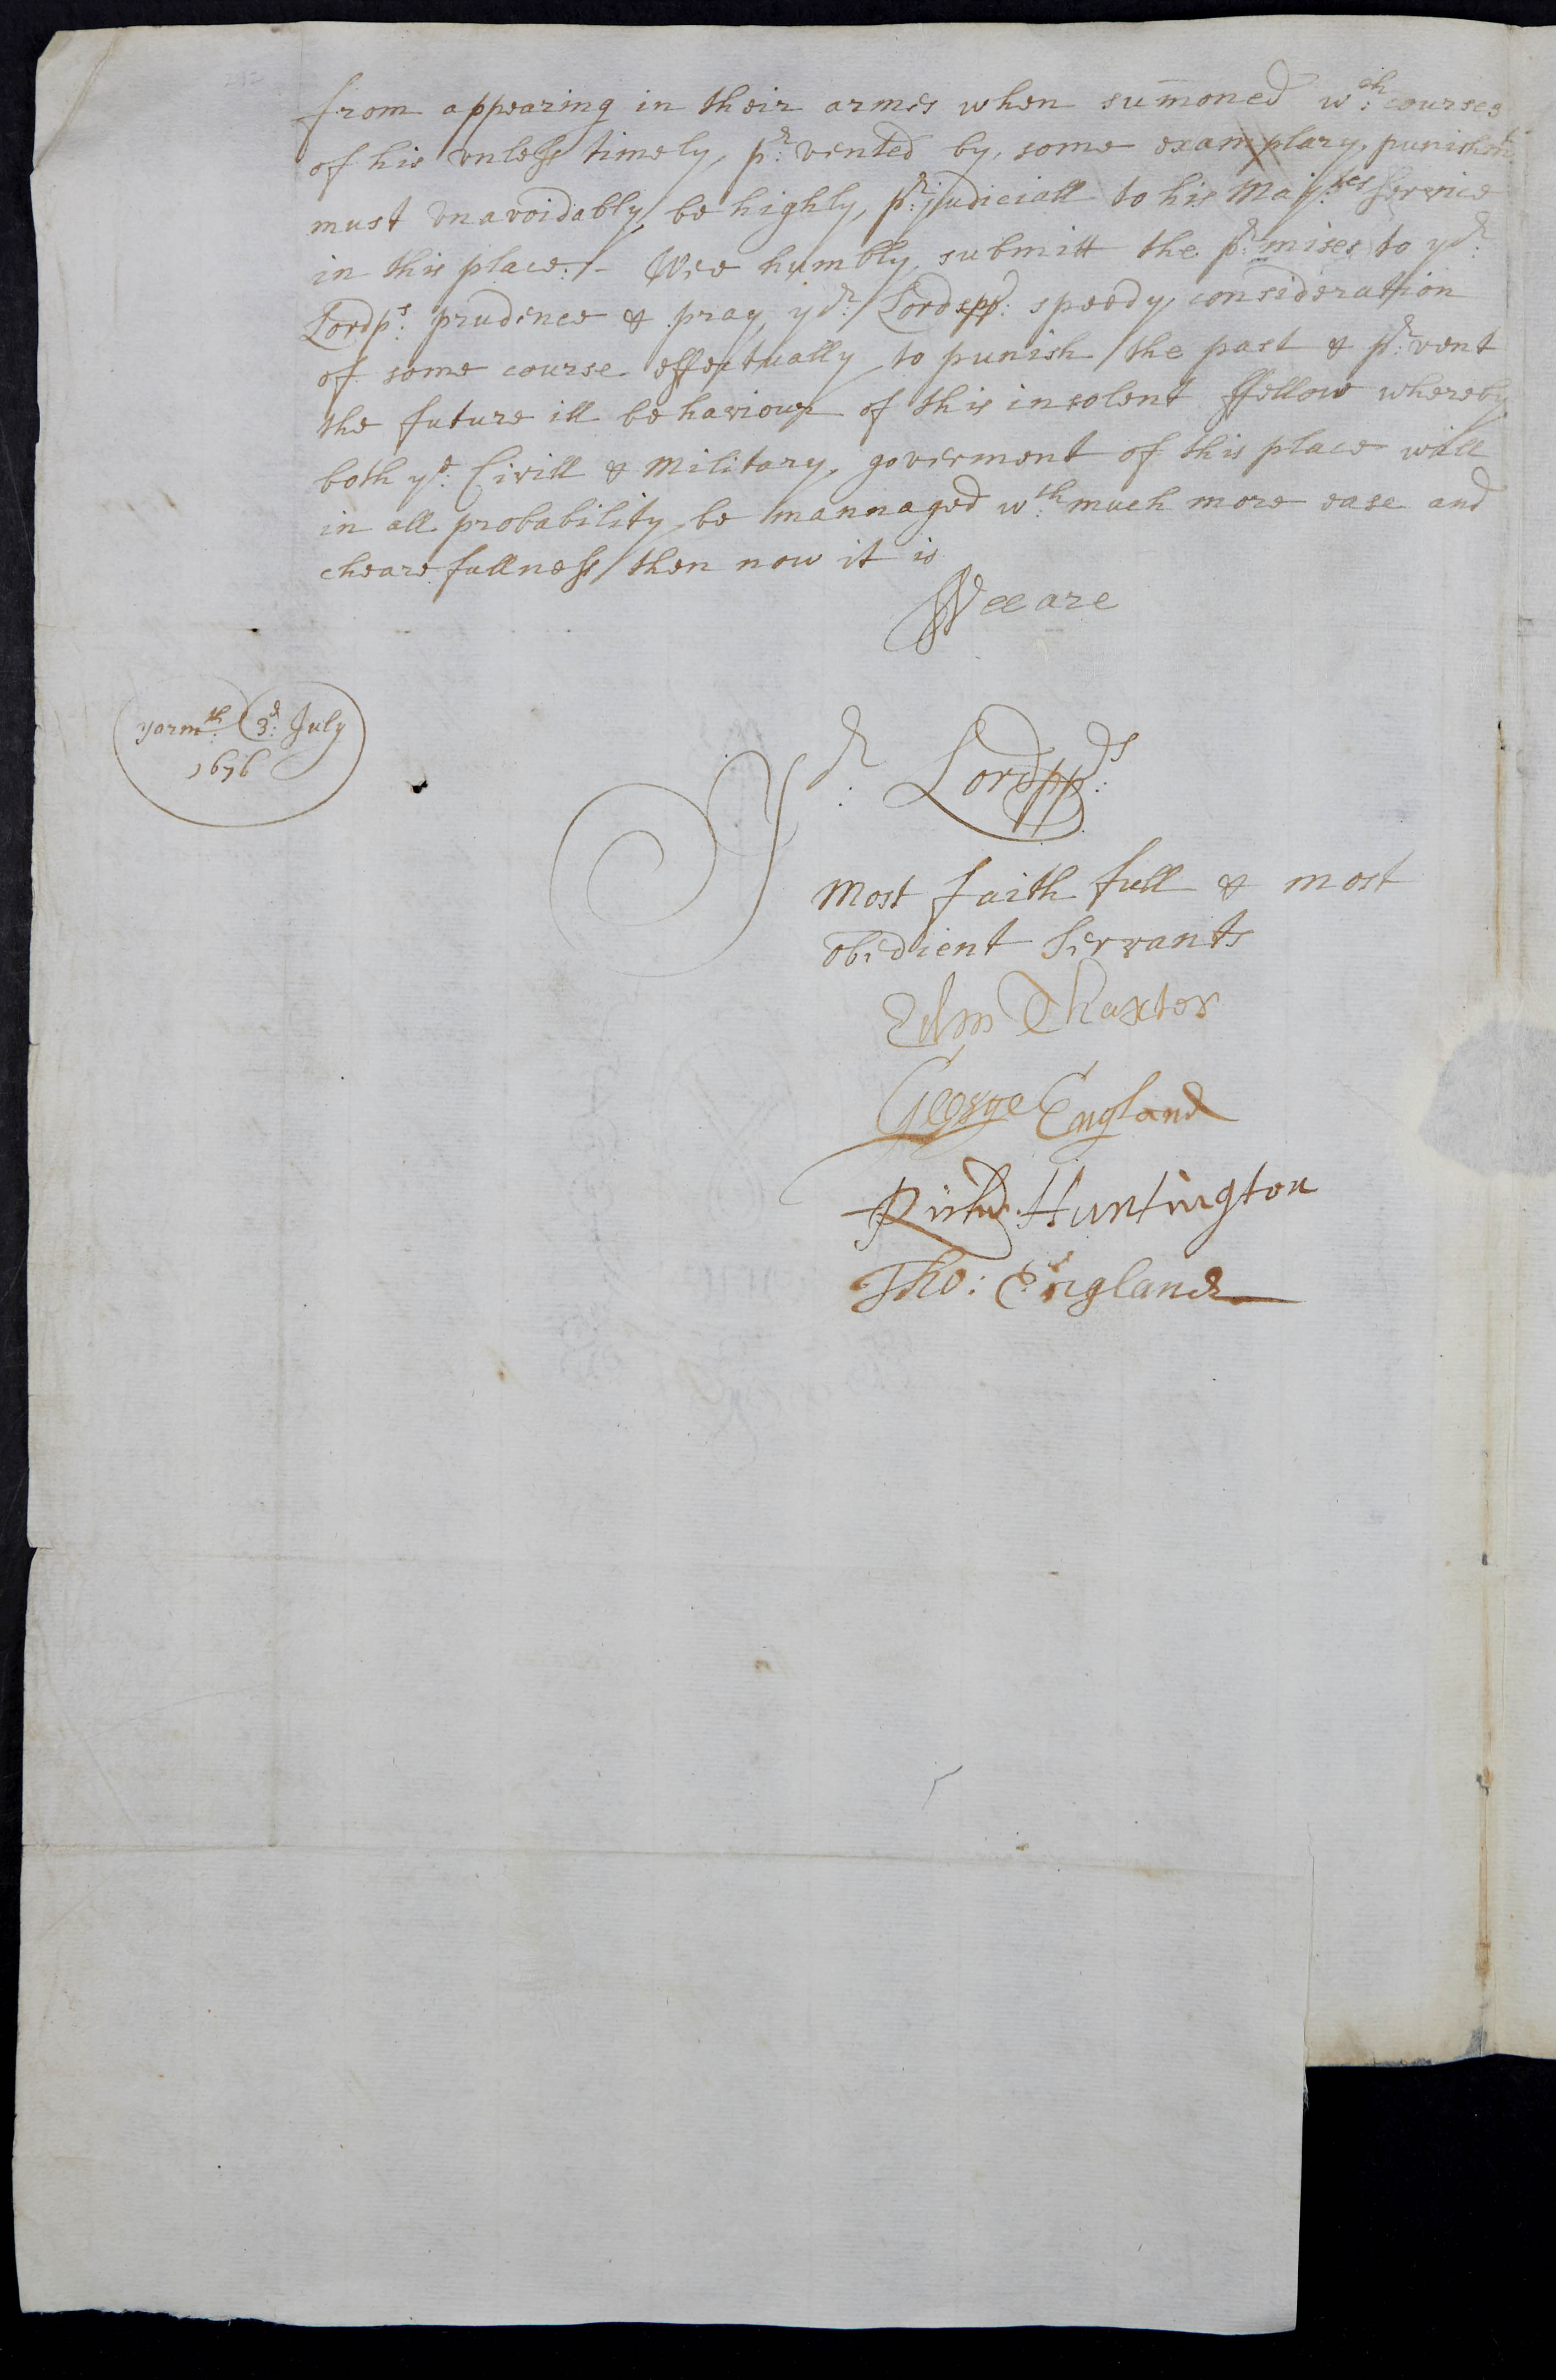 from appearing in their armes when sum̄oned w:ch courses
of his vnless timely p:rvented by some examplary punishmt
must vnavoidably be highly p:rjudiciall to his Maj:ties Service
in this place:/- Wee humbly submitt the p:rmises to yr:
Lordps: prudence & pray yr: Lordspps: speedy consideration
of some course effectually to punish the past & p:rvent
the future ill behaviour of this insolent ffellow whereby
both ye: Civill & Military goverment of this place will
in all probability be mannaged w:th much more ease and
chearefullness then now it is
Wee are
Yarmth: 3d: July
1676
Yr: Lordpps:
Most faithfull & most
obedient Servants
Edm Thaxter
George England
Richd: Huntington
Tho: England